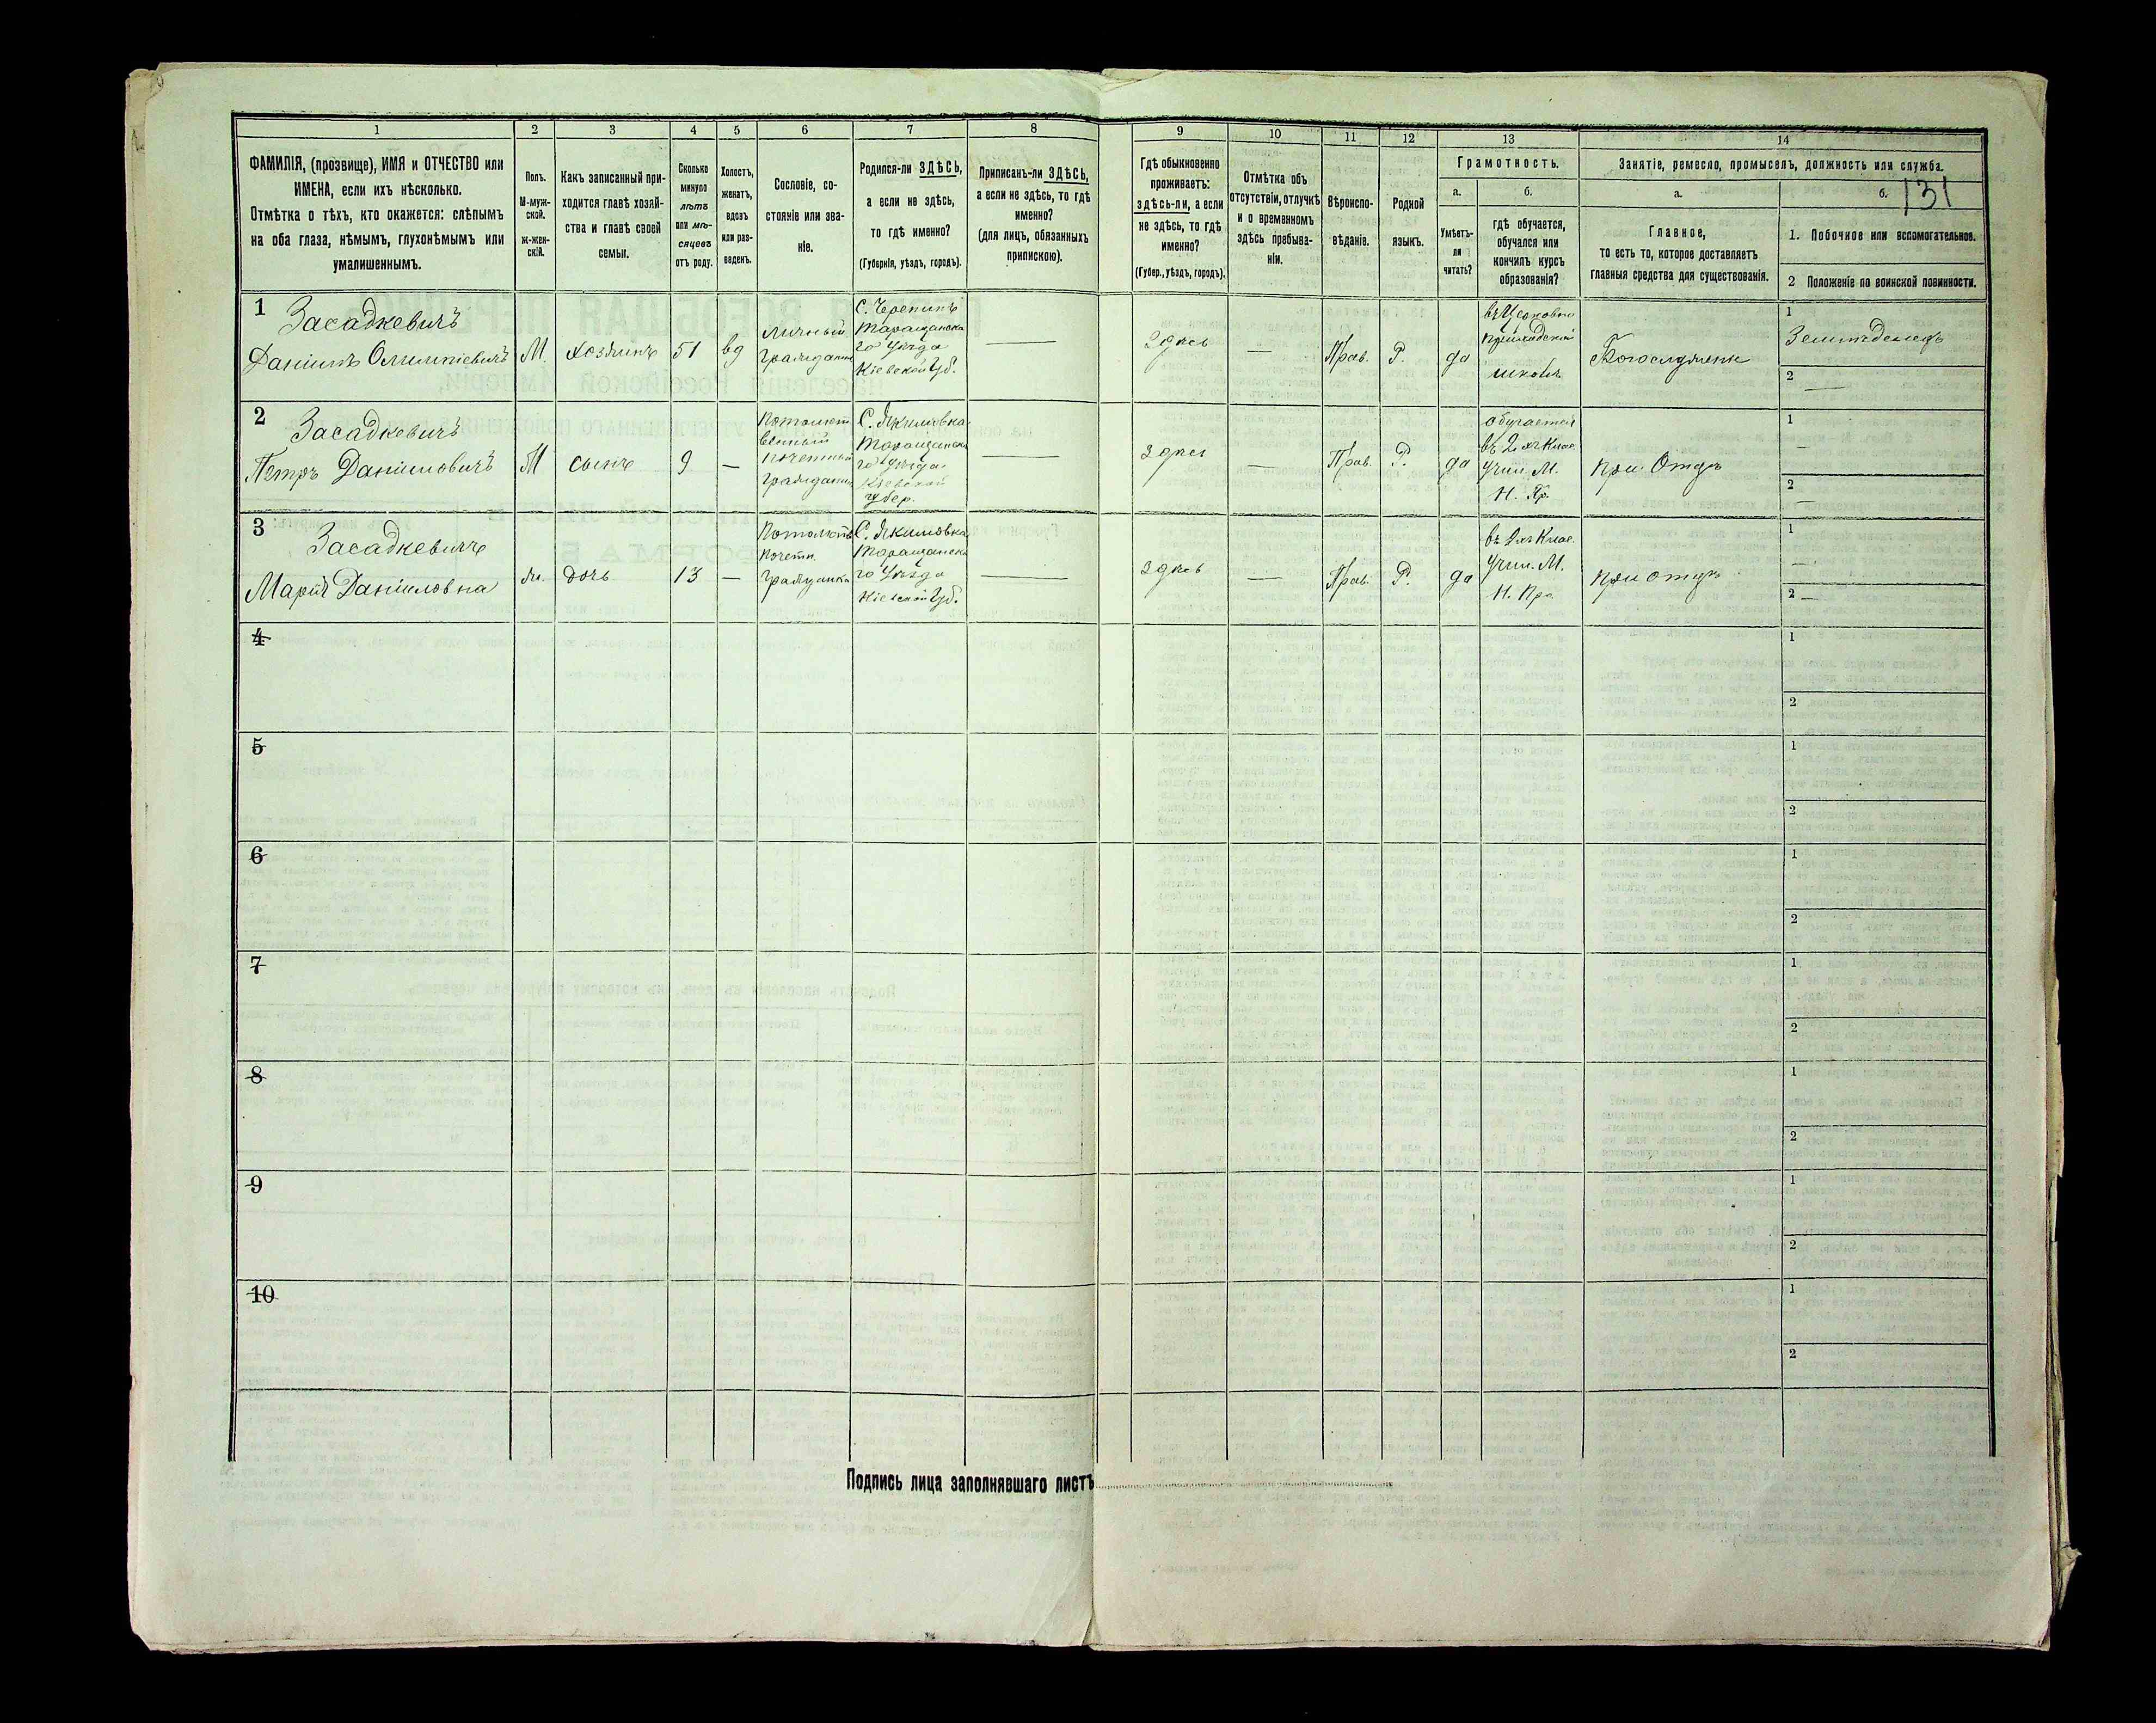 1 2 3 4 5 6 7 8 9 10 11 12 13 14
ФАМИЛІЯ, (прозвище), ИМЯ и ОТЧЕСТВО или
ИМЕНА, если ихъ нѣсколько.
Отмѣтка о тѣхъ, кто окажется: слѣпымъ
на оба глаза, нѣмымъ, глухонѣмымъ или
умалишеннымъ.
Полъ.
М-муж-
ской.
ж-жен-
скій.
Какъ записанный при-
ходится главѣ хозяй-
ства и главѣ своей
семьи.
Сколько
минуло
лѣтъ
или мѣ-
сяцевъ
отъ роду.
Холостъ,
женатъ,
вдовъ
или раз-
веденъ.
Сословіе, со-
стояніе или зва-
ніе.
Родился-ли ЗДѢСЬ,
а если не здѣсь,
то гдѣ именно?
(Губернія, уѣздъ, городъ).
Приписанъ-ли ЗДѢСЬ,
а если не здѣсь, то гдѣ
именно?
(для лицъ, обязанныхъ
припискою).
Гдѣ обыкновенно
проживаетъ:
здѣсь-ли, а если
не здѣсь, то гдѣ
именно?
(Губер., уѣздъ, городъ).
Отмѣтка объ
отсутствіи, отлучкѣ
и о временномъ
здѣсь пребыва-
ніи.
Вѣроиспо-
вѣданіе.
Родной
языкъ.
Грамотность.
а.
Умѣетъ-
ли
читать?
б.
гдѣ обучается,
обучался или
кончилъ курсъ
образованія?
Занятіе, ремесло, промыселъ, должность или служба.
а.
Главное,
то есть то, которое доставляетъ
главныя средства для существованія.
б.
131
1. Побочное или вспомогательное.
2 Положеніе по воинской повинности.
1
Засадкевичъ
Даніилъ
М.
хозяинъ
51
вд
личный
гражданинъ
С. Черепинъ
Таращанска
го Уѣзда
Кіевской Губ.
—
здѣсь
—
Прав.
Р.
да
въ Церковно
приходской
школѣ
1
Земледелецъ
2
—
2
Засадкевичъ
Петръ Даніиловичъ
М
сынъ
9
—
Потомст
венный
почетный
гражданинъ
С. Якимовка
Таращанска
го Уѣзда
Кіевской
губер.
—
здѣсь
—
Прав.
Р.
да
обучается
въ 2хъ Клас.
Учил. М.
Н. Пр.
при Отцѣ
1
—
2
—
3
Засадкевичъ
Марія Даніиловна
ж.
дочь
13
—
Потомств
почетн.
гражданка
С. Якимовка
Таращанска
го Уѣзда
Кіевской Губ.
—
здѣсь
—
Прав.
Р.
да
въ 2хъ Клас.
Учил. М.
Н. Про.
при отцѣ
1
—
2 —
4
1
2
5
1
2
6
1
2
7
1
2
8
1
2
9
1
2
10
1
2
Подпись лица заполнявшаго листъ